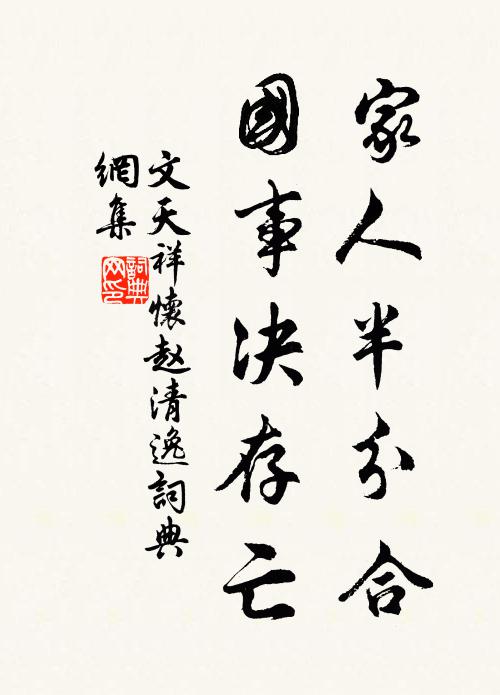 家人半分合
國事決存亡
文天祥懷赵清逸詞典
網集
詞典网印